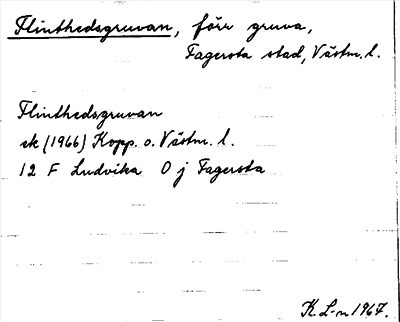 Flinthedsgruvan, förr gruva,
Fagersta stad, Västm. l.
Flinthedsgruvan
ek (1966) Kopp. o. Västm. l.
12 F Ludvika 0 j Fagersta
K. L-n 1967.